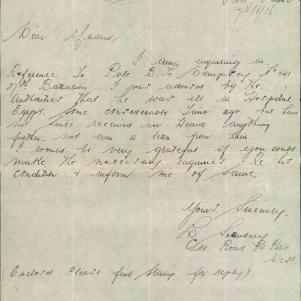 24/1/16
Dear Madam
I am inquiring in
Reference To Pvte B. Dempsey No 641
27th Battalion, I was warned by the
Authorities That he was ill in Hospital
Egypt some considerable time ago but have
not since received nor heard anything
further not even a letter from him
I would be very grateful if you could
make the necessary inquiries Re his
condition & inform me of same
Yours Sincerely
Road Pt Pirie
West
(Enclosed please find stamp for reply)